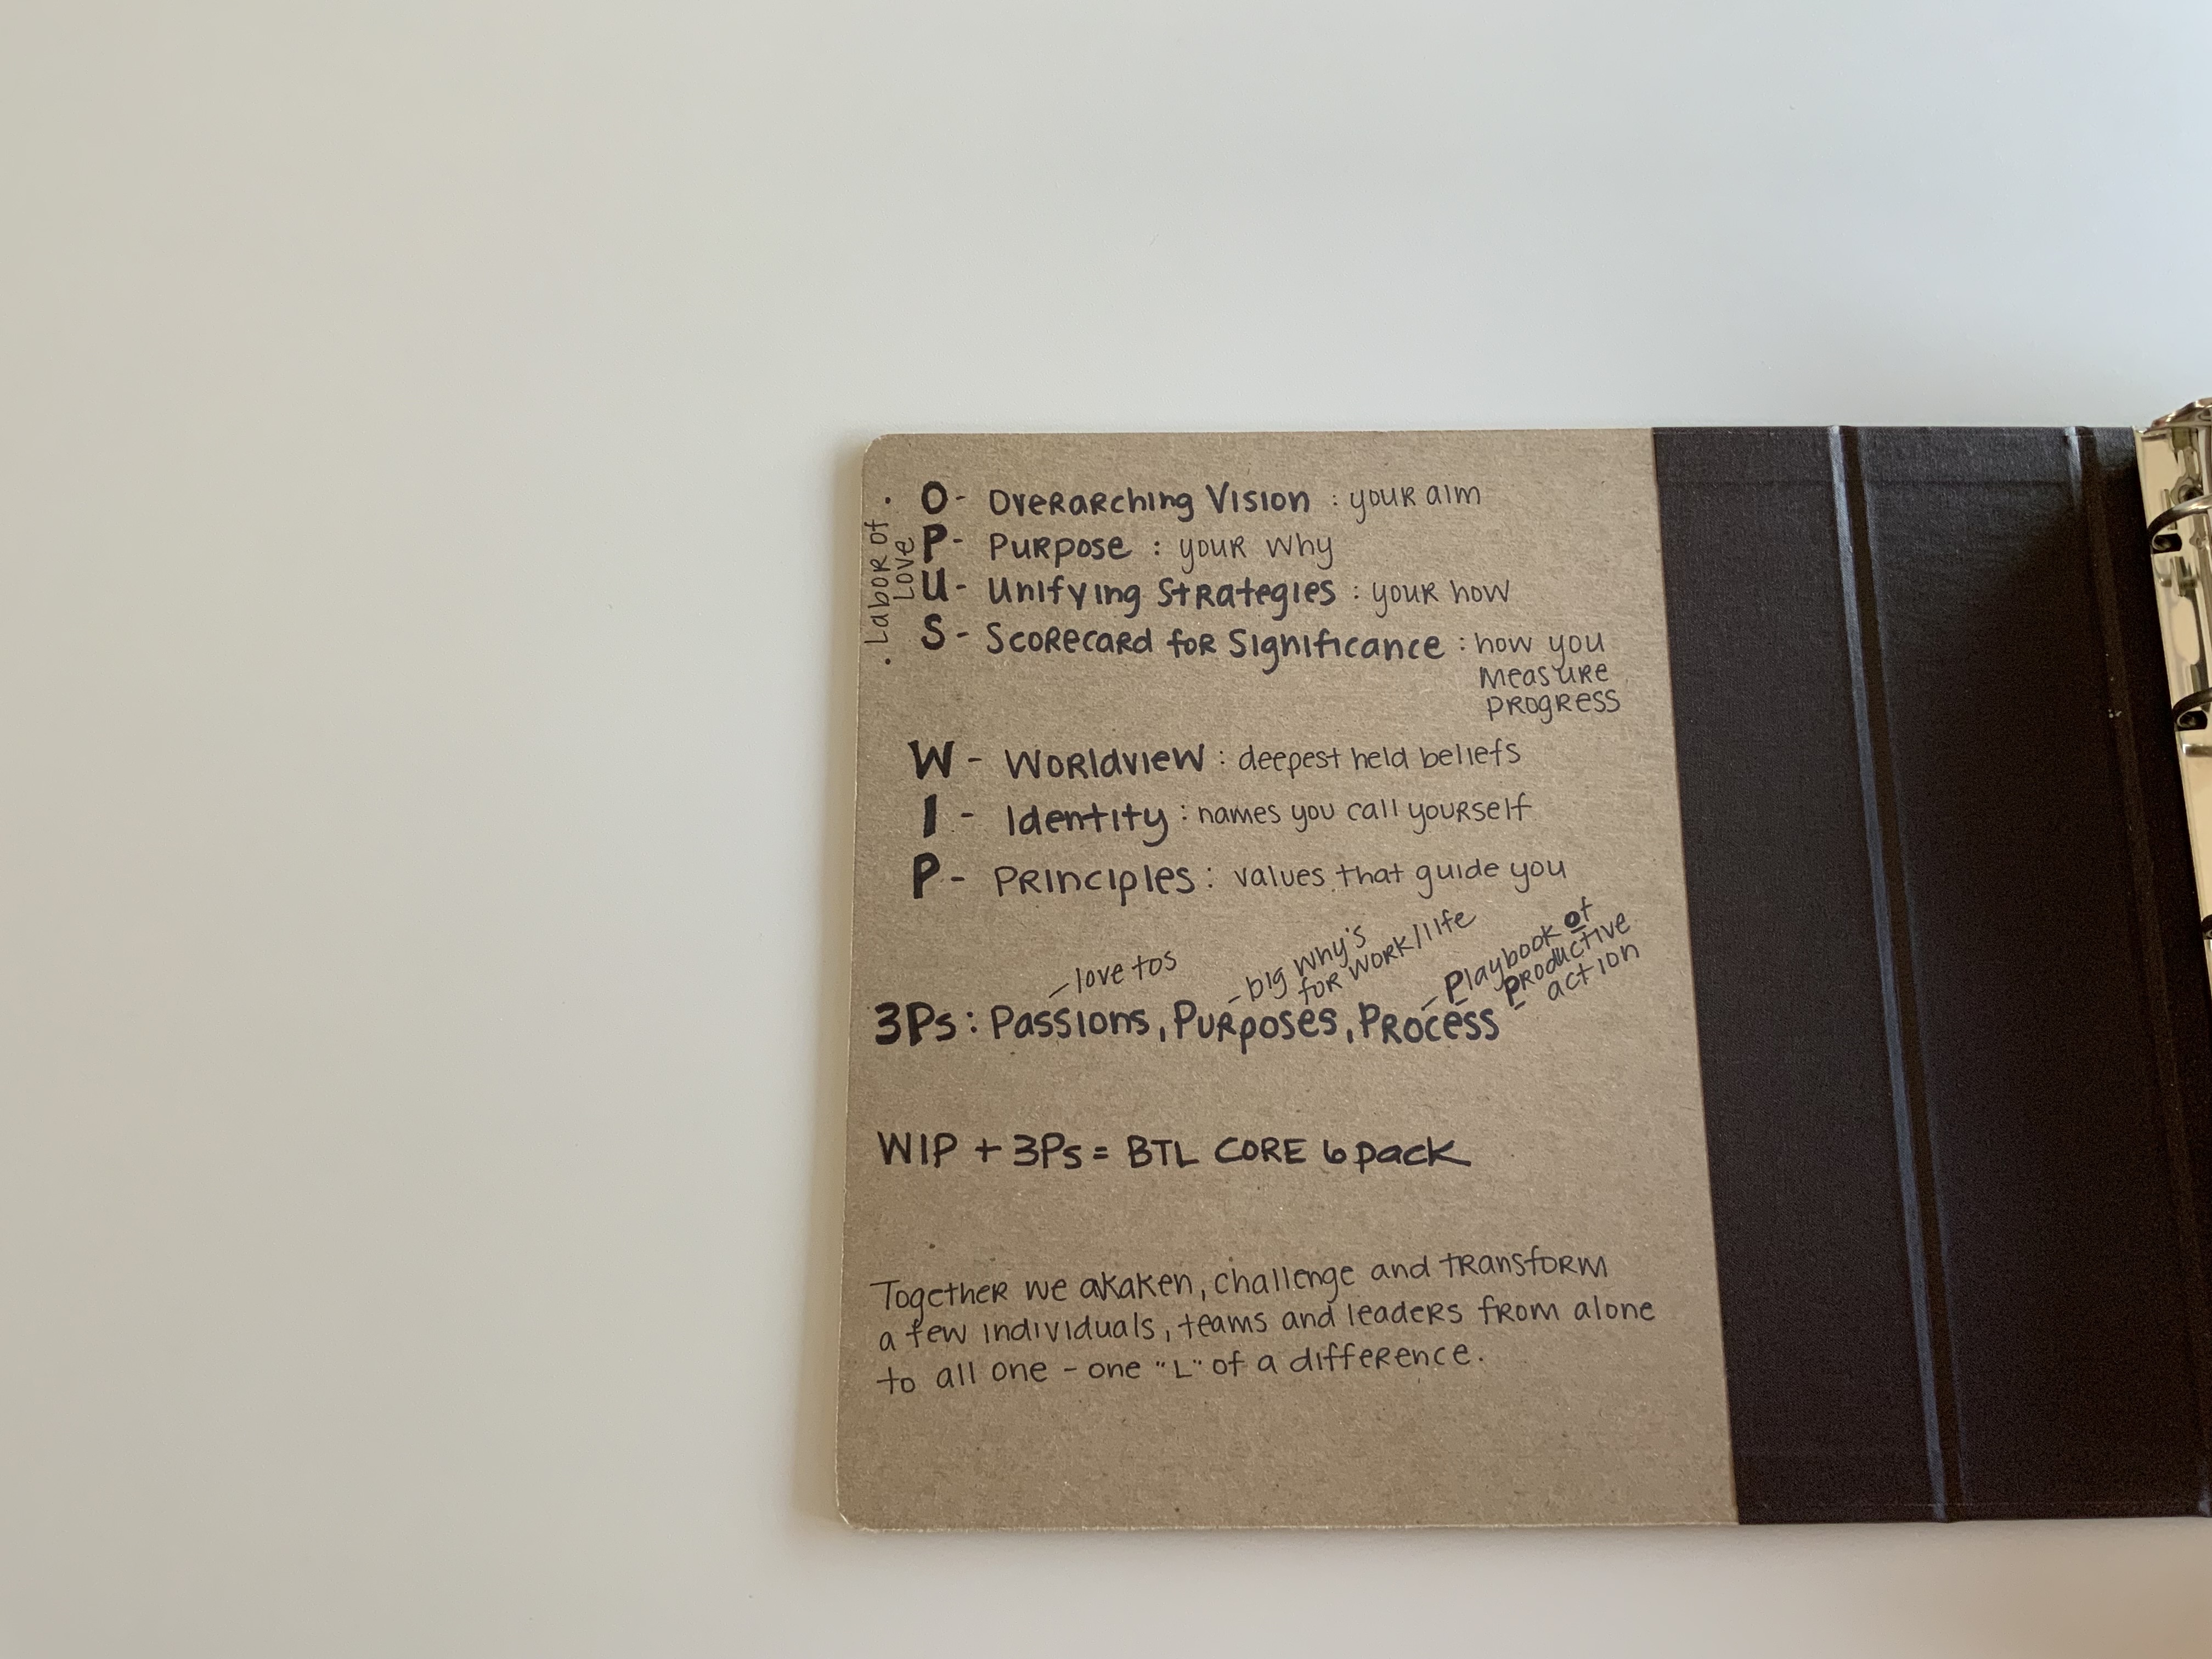 . Labor of .
Love
O - Overarching Vision : your aim
P - Purpose : your why
U - Unifying Strategies : your how
S - Scorecard for Significance : how you
measure
progress
W - Worldview : deepest held beliefs
I - Identity : names you call yourself
P - Principles : values that guide you
- love tos
- big why's
for work/life
- Playbook of
Productive
action
3Ps : Passions, Purposes, Process
WIP + 3Ps = BTL CORE 6 pack
Together we akaken, challenge and transform
a few individuals, teams and leaders from alone
to all one - one "L" of a difference.